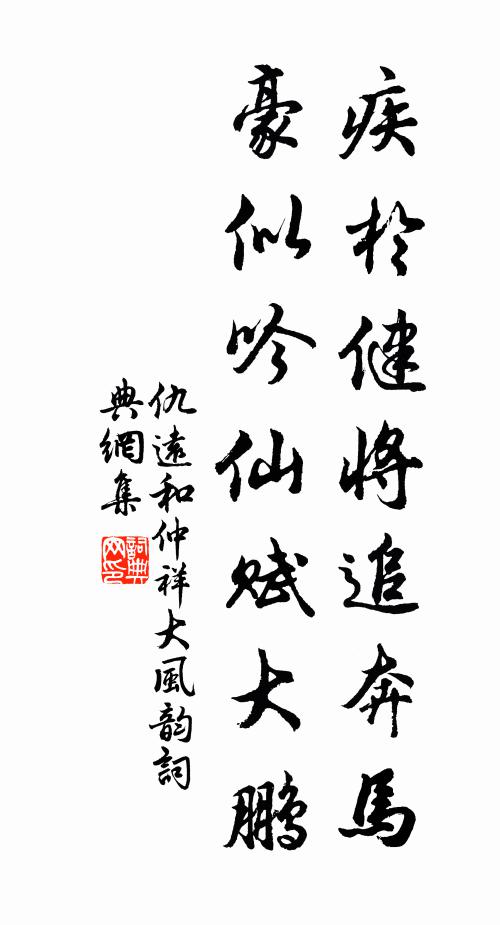 疾於健將追奔馬
豪似吟仙賦大鵬
仇遠和仲祥大風韵詞
典網集
詞典
网印